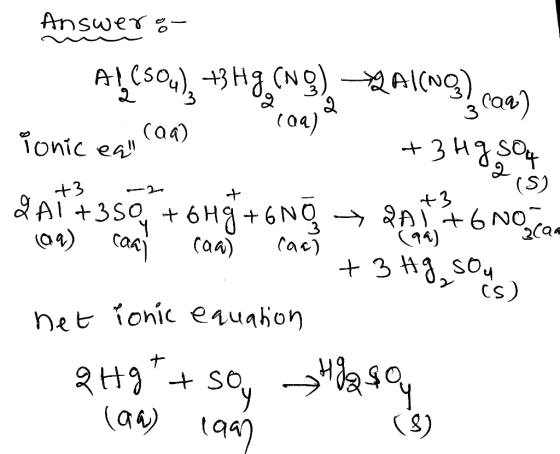 Answer :-
Al₂(SO₄)₃ + 3Hg₂(NO₃)₂ → 2Al(NO₃)₃ (aq)
(aq) (aq)
+ 3Hg₂SO₄ (s)
ionic eqⁿ
2Al⁺³ + 3SO₄⁻² + 6Hg⁺ + 6NO₃⁻ → 2Al⁺³ + 6NO₃⁻ (aq
(aq) (aq) (aq) (aq) (aq)
+ 3Hg₂SO₄ (s)
net ionic equation
2Hg⁺ + SO₄ → Hg₂SO₄
(aq) (aq) (s)